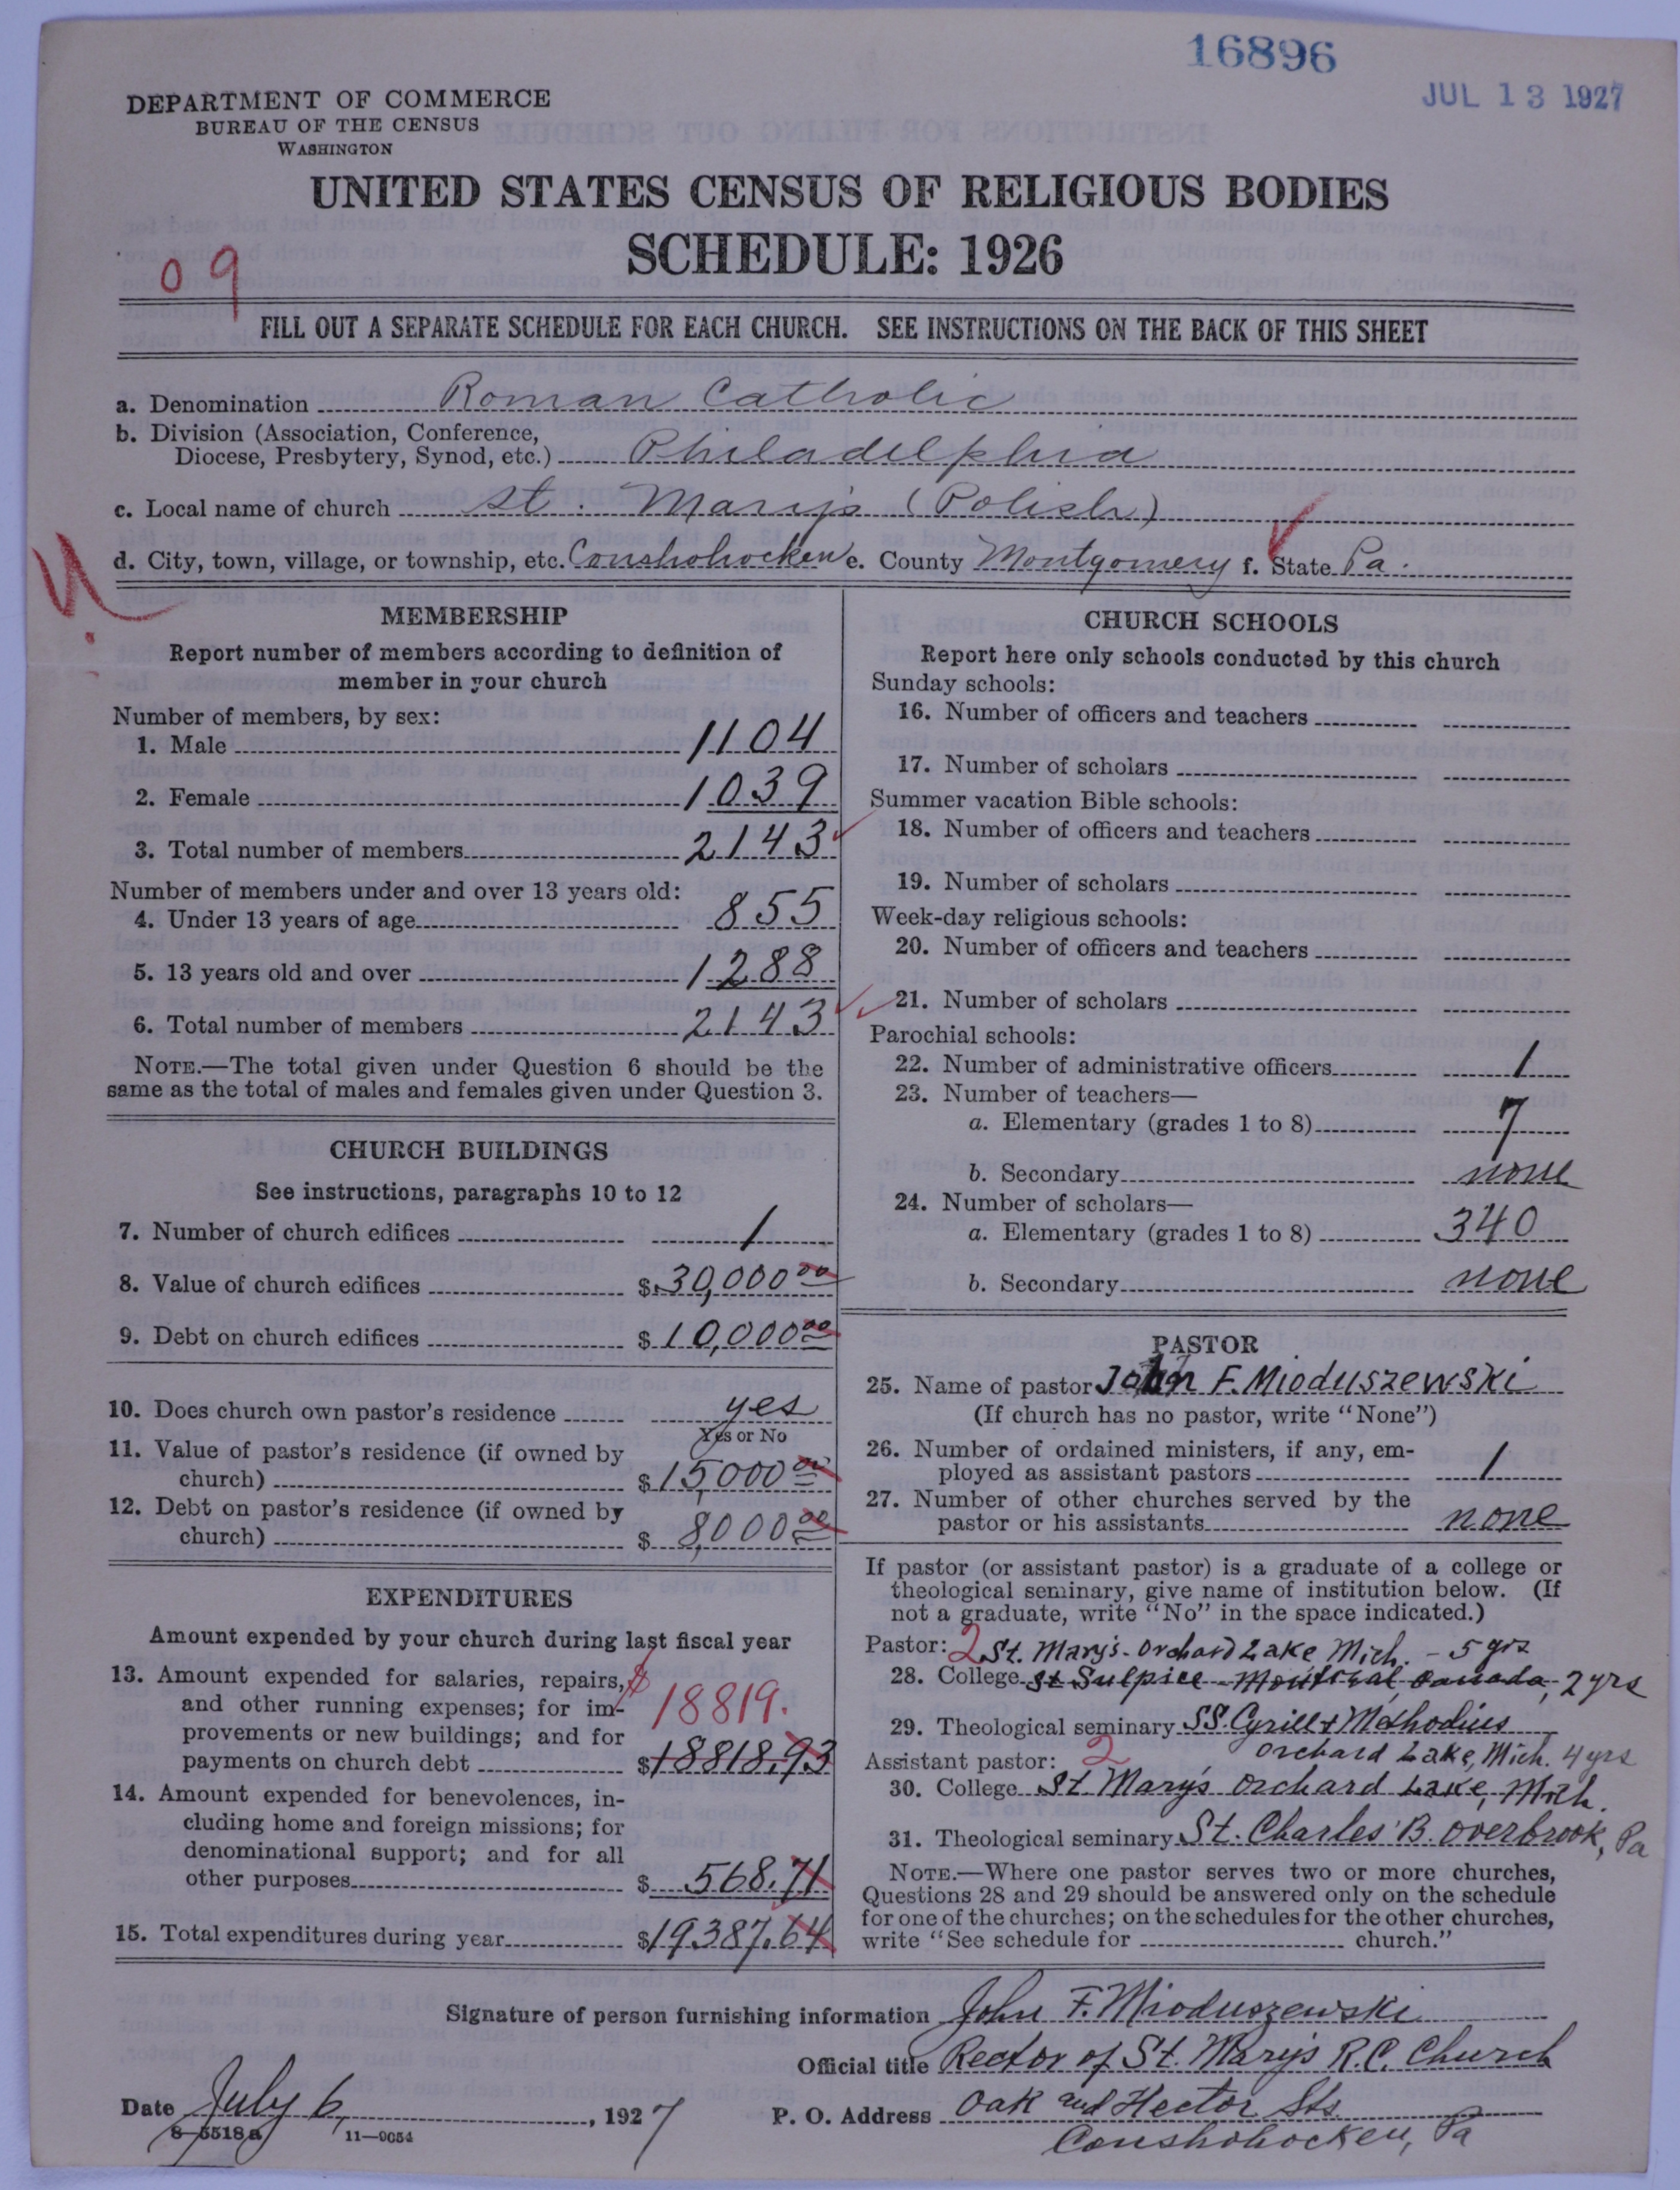 16896
JUL 13 1927
DEPARTMENT OF COMMERCE
BUREAU OF THE CENSUS
WASHINGTON
UNITED STATES CENSUS OF RELIGIOUS BODIES
SCHEDULE: 1926
09
FILL OUT A SEPARATE SCHEDULE FOR EACH CHURCH. SEE INSTRUCTIONS ON THE BACK OF THIS SHEET
a. Denomination Roman Catholic
b. Division (Association, Conference,
Diocese, Presbytery, Synod, etc.) Philadelphia
c. Local name of church St. Mary's (Polish)
d. City, town, village, or township, etc. Conshohocken e. County Montgomery f. State Pa.
MEMBERSHIP
Report number of members according to definition of
member in your church
Number of members, by sex:
1. Male 1104
2. Female 1039
3. Total number of members 2143
Number of members under and over 13 years old:
4. Under 13 years of age 855
5. 13 years old and over 1288
6. Total number of members 2143
NOTE.—The total given under Question 6 should be the
same as the total of males and females given under Question 3.
CHURCH BUILDINGS
See instructions, paragraphs 10 to 12
7. Number of church edifices 1
8. Value of church edifices $30,000 00
9. Debt on church edifices $10,000 00
10. Does church own pastor's residence yes
Yes or No
11. Value of pastor's residence (if owned by
church) $15,000 00
12. Debt on pastor's residence (if owned by
church) $8,000 00
EXPENDITURES
Amount expended by your church during last fiscal year
13. Amount expended for salaries, repairs, $
and other running expenses; for im- 18819.
provements or new buildings; and for
payments on church debt $18818.93
14. Amount expended for benevolences, in-
cluding home and foreign missions; for
denominational support; and for all
other purposes $568.71
15. Total expenditures during year $19387.64
CHURCH SCHOOLS
Report here only schools conducted by this church
Sunday schools:
16. Number of officers and teachers
17. Number of scholars
Summer vacation Bible schools:
18. Number of officers and teachers
19. Number of scholars
Week-day religious schools:
20. Number of officers and teachers
21. Number of scholars
Parochial schools:
22. Number of administrative officers 1
23. Number of teachers—
a. Elementary (grades 1 to 8) 7
b. Secondary none
24. Number of scholars—
a. Elementary (grades 1 to 8) 340
b. Secondary none
PASTOR
25. Name of pastor John F. Mioduszewski
(If church has no pastor, write "None")
26. Number of ordained ministers, if any, em-
ployed as assistant pastors 1
27. Number of other churches served by the
pastor or his assistants none
If pastor (or assistant pastor) is a graduate of a college or
theological seminary, give name of institution below. (If
not a graduate, write "No" in the space indicated.)
Pastor: 2 St. Mary's - Orchard Lake Mich. - 5 yrs
28. College St Sulpice - Montreal, Canada, 2 yrs
29. Theological seminary SS. Cyrill + Methodius
Orchard Lake, Mich. 4 yrs
Assistant pastor: 2
30. College St. Mary's Orchard Lake, Mich.
31. Theological seminary St. Charles' B. Overbrook, Pa
NOTE.—Where one pastor serves two or more churches,
Questions 28 and 29 should be answered only on the schedule
for one of the churches; on the schedules for the other churches,
write "See schedule for church."
Signature of person furnishing information John F. Mioduszewski
Official title Rector of St. Mary's R.C. Church
Date July 6, 1927
P. O. Address Oak and Hector Sts
Conshohocken, Pa
8—5518a 11—9054